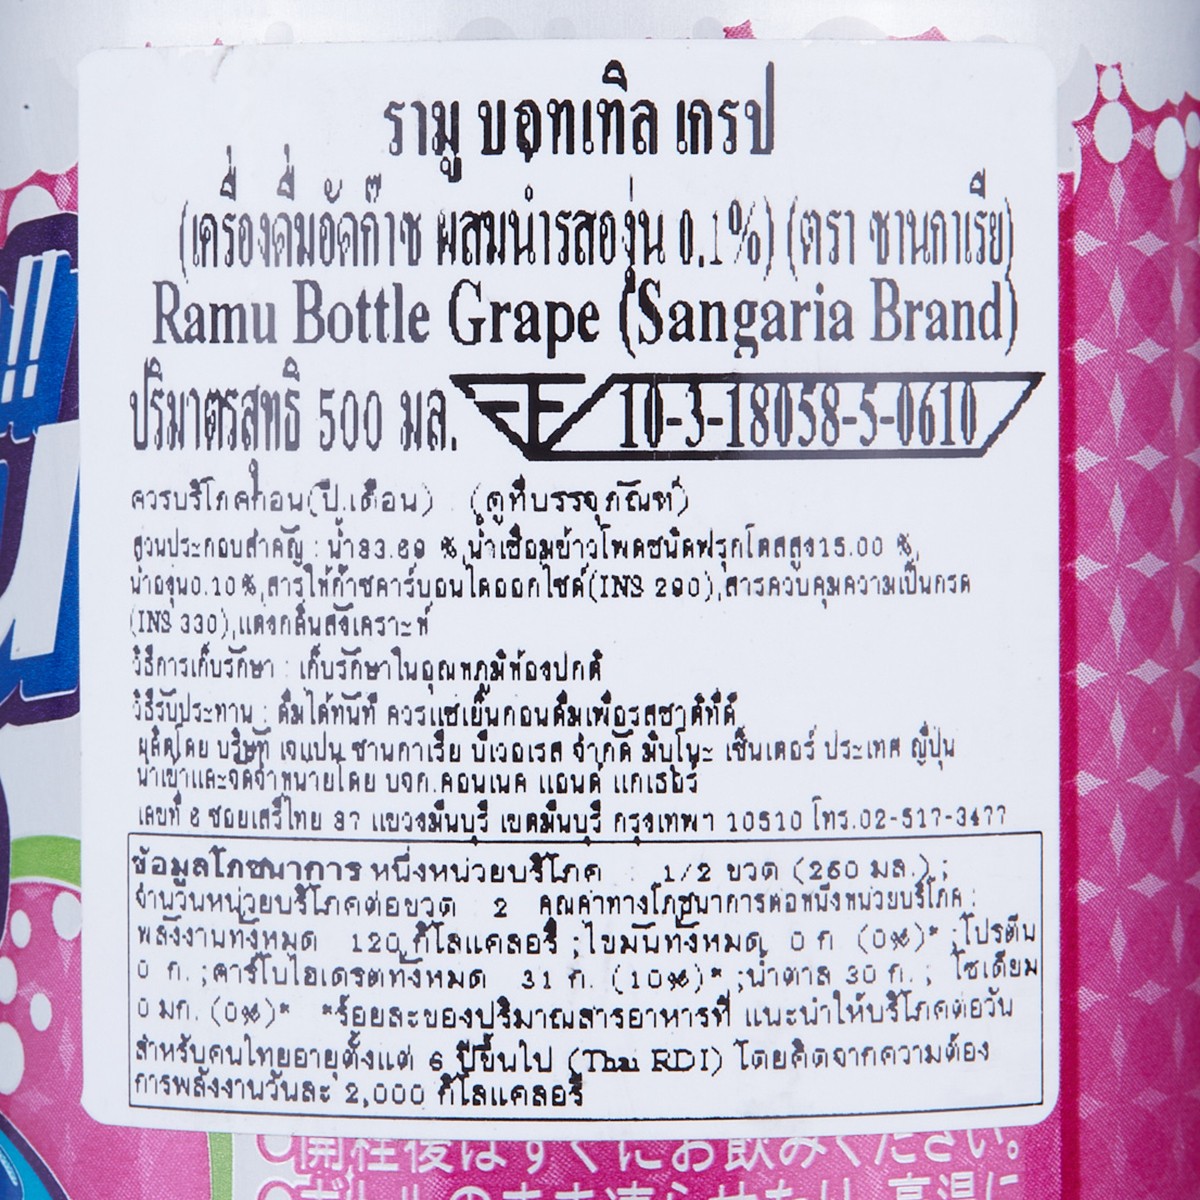 รามู บอทเทิล เกรป
(เครื่องดื่มอัดก๊าซ ผสมน้ำรสองุ่น 0.1%) (ตรา ซานกาเรีย)
Ramu Bottle Grape (Sangaria Brand)
ปริมาตรสุทธิ 500 มล. 10-3-18058-5-0610
ควรบริโภคก่อน(ปี.เดือน) : (ดูที่บรรจุภัณฑ์)
ส่วนประกอบสำคัญ : น้ำ83.69 %,น้ำเชื่อมข้าวโพดชนิดฟรุกโตสสูง15.00 %,
น้ำองุ่น0.10%,สารให้ก๊าซคาร์บอนไดออกไซด์(INS 290),สารควบคุมความเป็นกรด
(INS 330),แต่งกลิ่นสังเคราะห์
วิธีการเก็บรักษา : เก็บรักษาในอุณหภูมิห้องปกติ
วิธีรับประทาน : ดื่มได้ทันที ควรแช่เย็นก่อนดื่มเพื่อรสชาติที่ดี
ผลิตโดย บริษัท เจแปน ซานกาเรีย บีเวอเรส จำกัด มิบูโนะ เซ็นเตอร์ ประเทศ ญี่ปุ่น
นำเข้าและจัดจำหน่ายโดย บจก.คอนเนค แอนด์ แกเธอร์
เลขที่ 6 ซอยเสรีไทย 87 แขวงมีนบุรี เขตมีนบุรี กรุงเทพฯ 10510 โทร.02-517-3477
ข้อมูลโภชนาการ หนึ่งหน่วยบริโภค : 1/2 ขวด (250 มล.) ;
จำนวนหน่วยบริโภคต่อขวด : 2 คุณค่าทางโภชนาการต่อหนึ่งหน่วยบริโภค :
พลังงานทั้งหมด 120 กิโลแคลอรี ;ไขมันทั้งหมด 0 ก (0%)* ;โปรตีน
0 ก. ;คาร์โบไฮเดรตทั้งหมด 31 ก. (10%)* ;น้ำตาล 30 ก. ; โซเดียม
0 มก. (0%)* *ร้อยละของปริมาณสารอาหารที่ แนะนำให้บริโภคต่อวัน
สำหรับคนไทยอายุตั้งแต่ 6 ปีขึ้นไป (Thai RDI) โดยคิดจากความต้อง
การพลังงานวันละ 2,000 กิโลแคลอรี
開栓後はすぐにお飲みください。